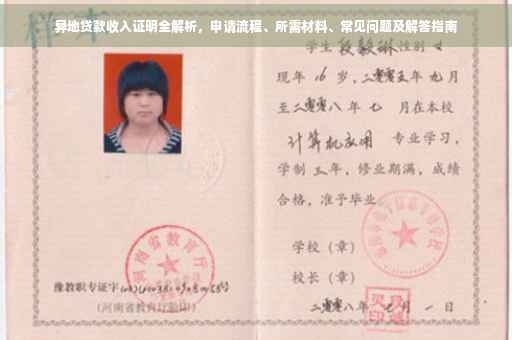 异地贷款收入证明全解析，申请流程、所需材料、常见问题及解答指南
样本
学生段毅琳性别女
现年16岁，二零零五年九月
至二零零八年七月在本校
计算机应用专业学习，
学制三年，修业期满，成绩
合格，准予毕业。
学校（章）
校长（章）
豫教职专证字
（河南省教育厅验印）
二零零八年七月一日
河南省教育厅